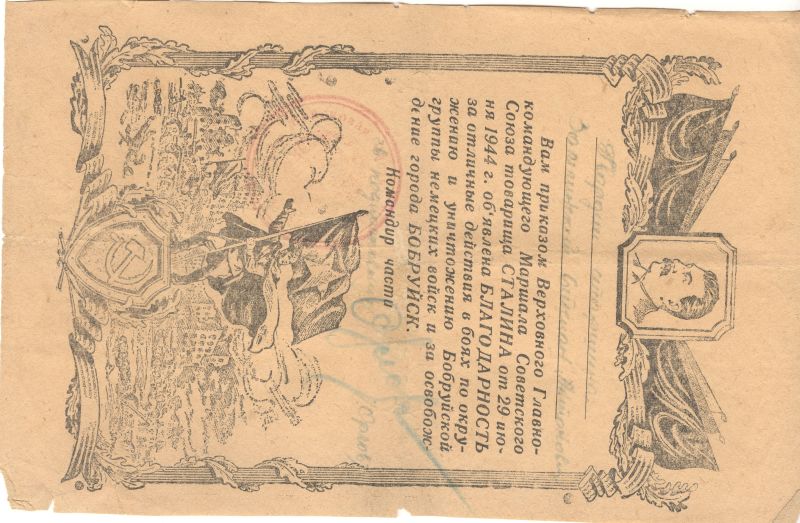 Вам приказом Верховного Главно-
командующего Маршала Советского
Союза товарища СТАЛИНА от 29 ию-
ня 1944 г. об'явлена БЛАГОДАРНОСТЬ
за отличные действия в боях по окру-
жению и уничтожению Бобруйской
группы немецких войск и за освобож-
дение города БОБРУЙСК.
Командир части